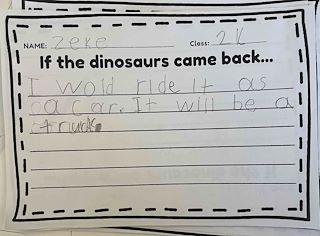 NAME: Zeke Class: 2K
If the dinosaurs came back...
I wold ride it as
a car. It will be a
truck